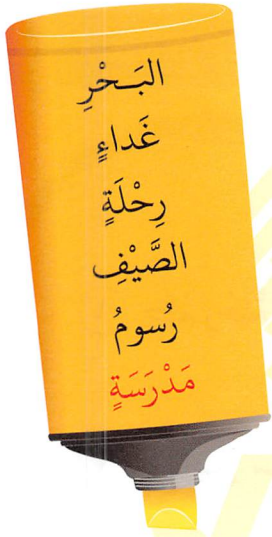 البَـحْرِ
غَداءٍ
رِحْلَةٍ
الصَّيْفِ
رُسومُ
مَدْرَسَةٍ